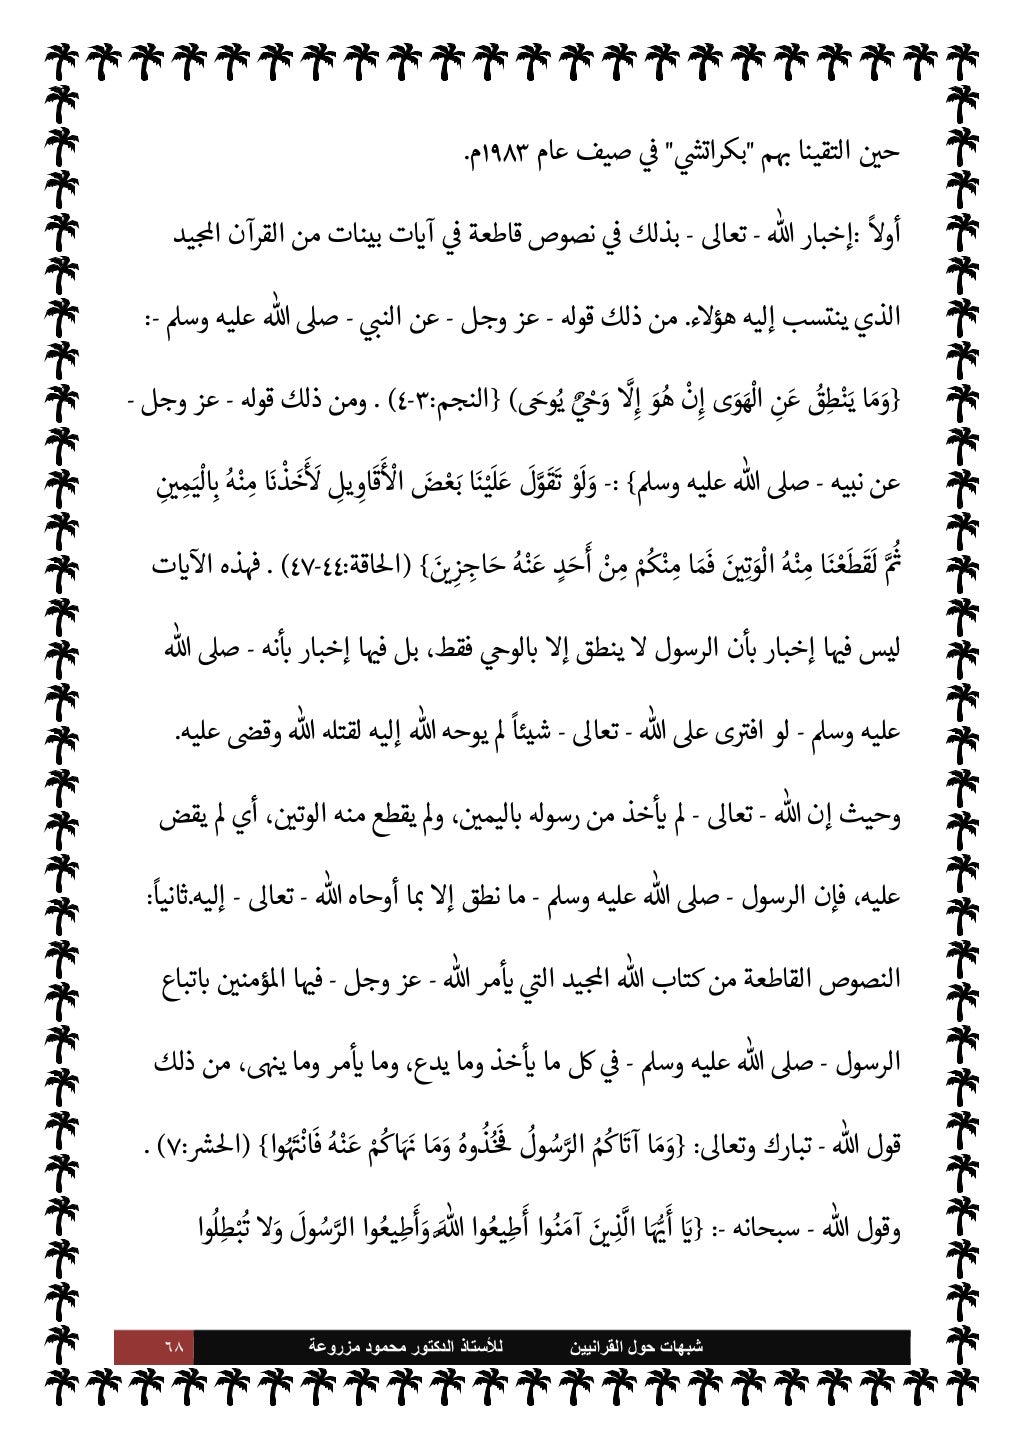 حين التقينا بهم "بكراتشي" في صيف عام ١٩٨٣م.
أولاً :إخبار الله - تعالى - بذلك في نصوص قاطعة في آيات بينات من القرآن المجيد
الذي ينتسب إليه هؤلاء. من ذلك قوله - عز وجل - عن النبي - صلى الله عليه وسلم -:
{وَمَا يَنْطِقُ عَنِ الْهَوَى إِنْ هُوَ إِلَّا وَحْيٌ يُوحَى) {النجم:٣-٤) . ومن ذلك قوله - عز وجل -
عن نبيه - صلى الله عليه وسلم} :- وَلَوْ تَقَوَّلَ عَلَيْنَا بَعْضَ الْأَقَاوِيلِ لَأَخَذْنَا مِنْهُ بِالْيَمِينِ
ثُمَّ لَقَطَعْنَا مِنْهُ الْوَتِينَ فَمَا مِنْكُمْ مِنْ أَحَدٍ عَنْهُ حَاجِزِينَ} (الحاقة:٤٤-٤٧) . فهذه الآيات
ليس فيها إخبار بأن الرسول لا ينطق إلا بالوحي فقط، بل فيها إخبار بأنه - صلى الله
عليه وسلم - لو افترى على الله - تعالى - شيئاً لم يوحه الله إليه لقتله الله وقضى عليه.
وحيث إن الله - تعالى - لم يأخذ من رسوله باليمين، ولم يقطع منه الوتين، أي لم يقض
عليه، فإن الرسول - صلى الله عليه وسلم - ما نطق إلا بما أوحاه الله - تعالى - إليه.ثانياً:
النصوص القاطعة من كتاب الله المجيد التي يأمر الله - عز وجل - فيها المؤمنين باتباع
الرسول - صلى الله عليه وسلم - في كل ما يأخذ وما يدع، وما يأمر وما ينهى، من ذلك
قول الله - تبارك وتعالى: {وَمَا آتَاكُمُ الرَّسُولُ فَخُذُوهُ وَمَا نَهَاكُمْ عَنْهُ فَانْتَهُوا} (الحشر:٧) .
وقول الله - سبحانه -: {يَا أَيُّهَا الَّذِينَ آمَنُوا أَطِيعُوا اللَّهَ وَأَطِيعُوا الرَّسُولَ وَلا تُبْطِلُوا
شبهات حول القرانيين للأستاذ الدكتور محمود مزروعة ٦٨